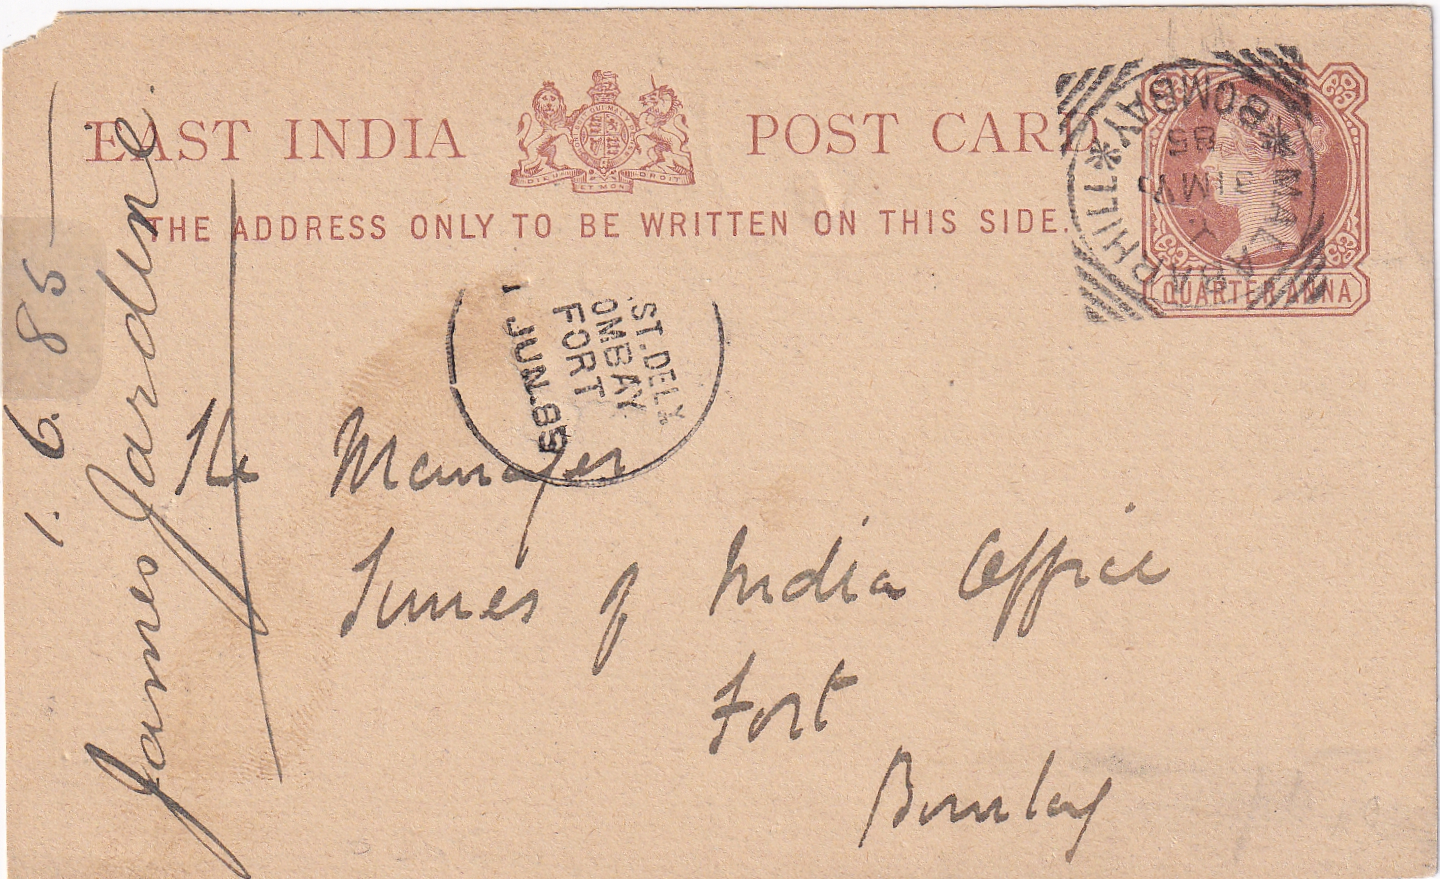 EAST INDIA POST CARD.
DIEU ET MON DROIT
THE ADDRESS ONLY TO BE WRITTEN ON THIS SIDE.
QUARTER ANNA
MALABAR HILL * BOMBAY *
85
1 JUN. 85
FORT
OMBAY
ST. DELY
The Manager
Times of India Office
Fort
Bombay
James Jardine.
1. 6. 85